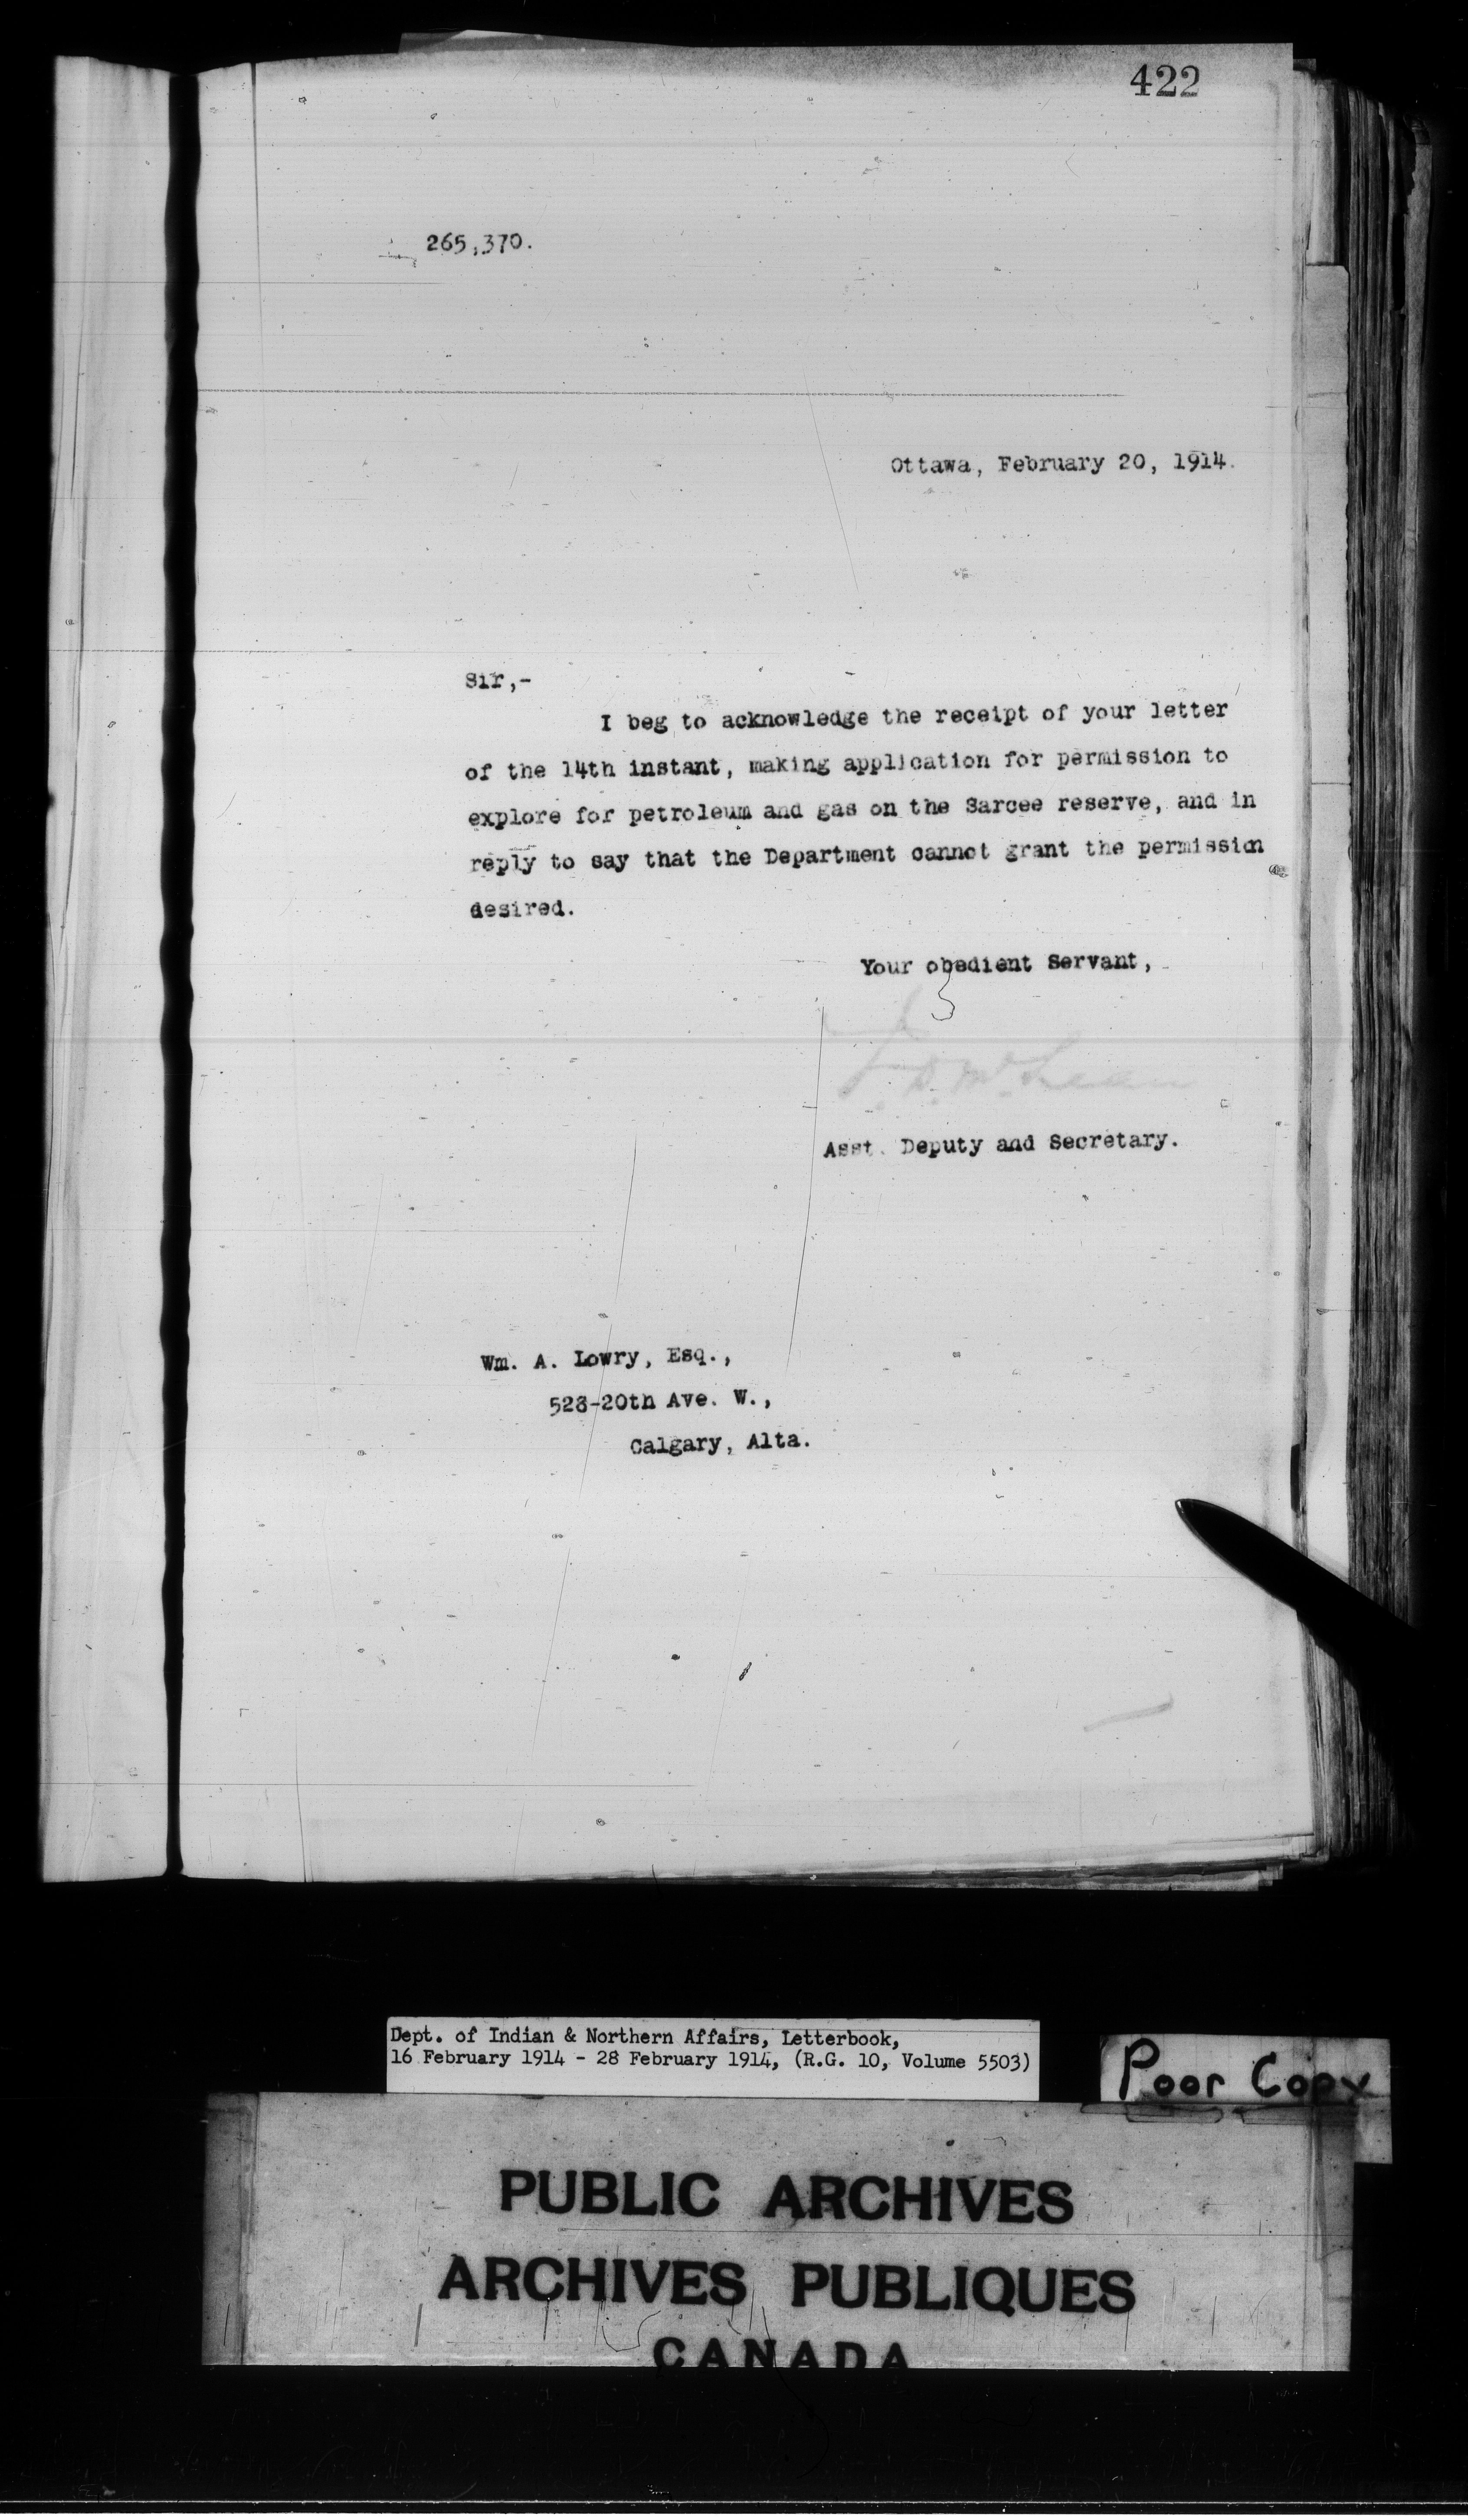 422
265,370.
Ottawa, February 20, 1914.
Sir,-
I beg to acknowledge the receipt of your letter
of the 14th instant, making application for permission to
explore for petroleum and gas on the Sarcee reserve, and in
reply to say that the Department cannot grant the permission
desired.
Your obedient Servant,
J. D. McLean
Asst. Deputy and Secretary.
Wm. A. Lowry, Esq.,
528-20th Ave. W.,
Calgary, Alta.
Dept. of Indian & Northern Affairs, Letterbook,
16 February 1914 - 28 February 1914, (R.G. 10, Volume 5503)
Poor Copy
PUBLIC ARCHIVES
ARCHIVES PUBLIQUES
CANADA